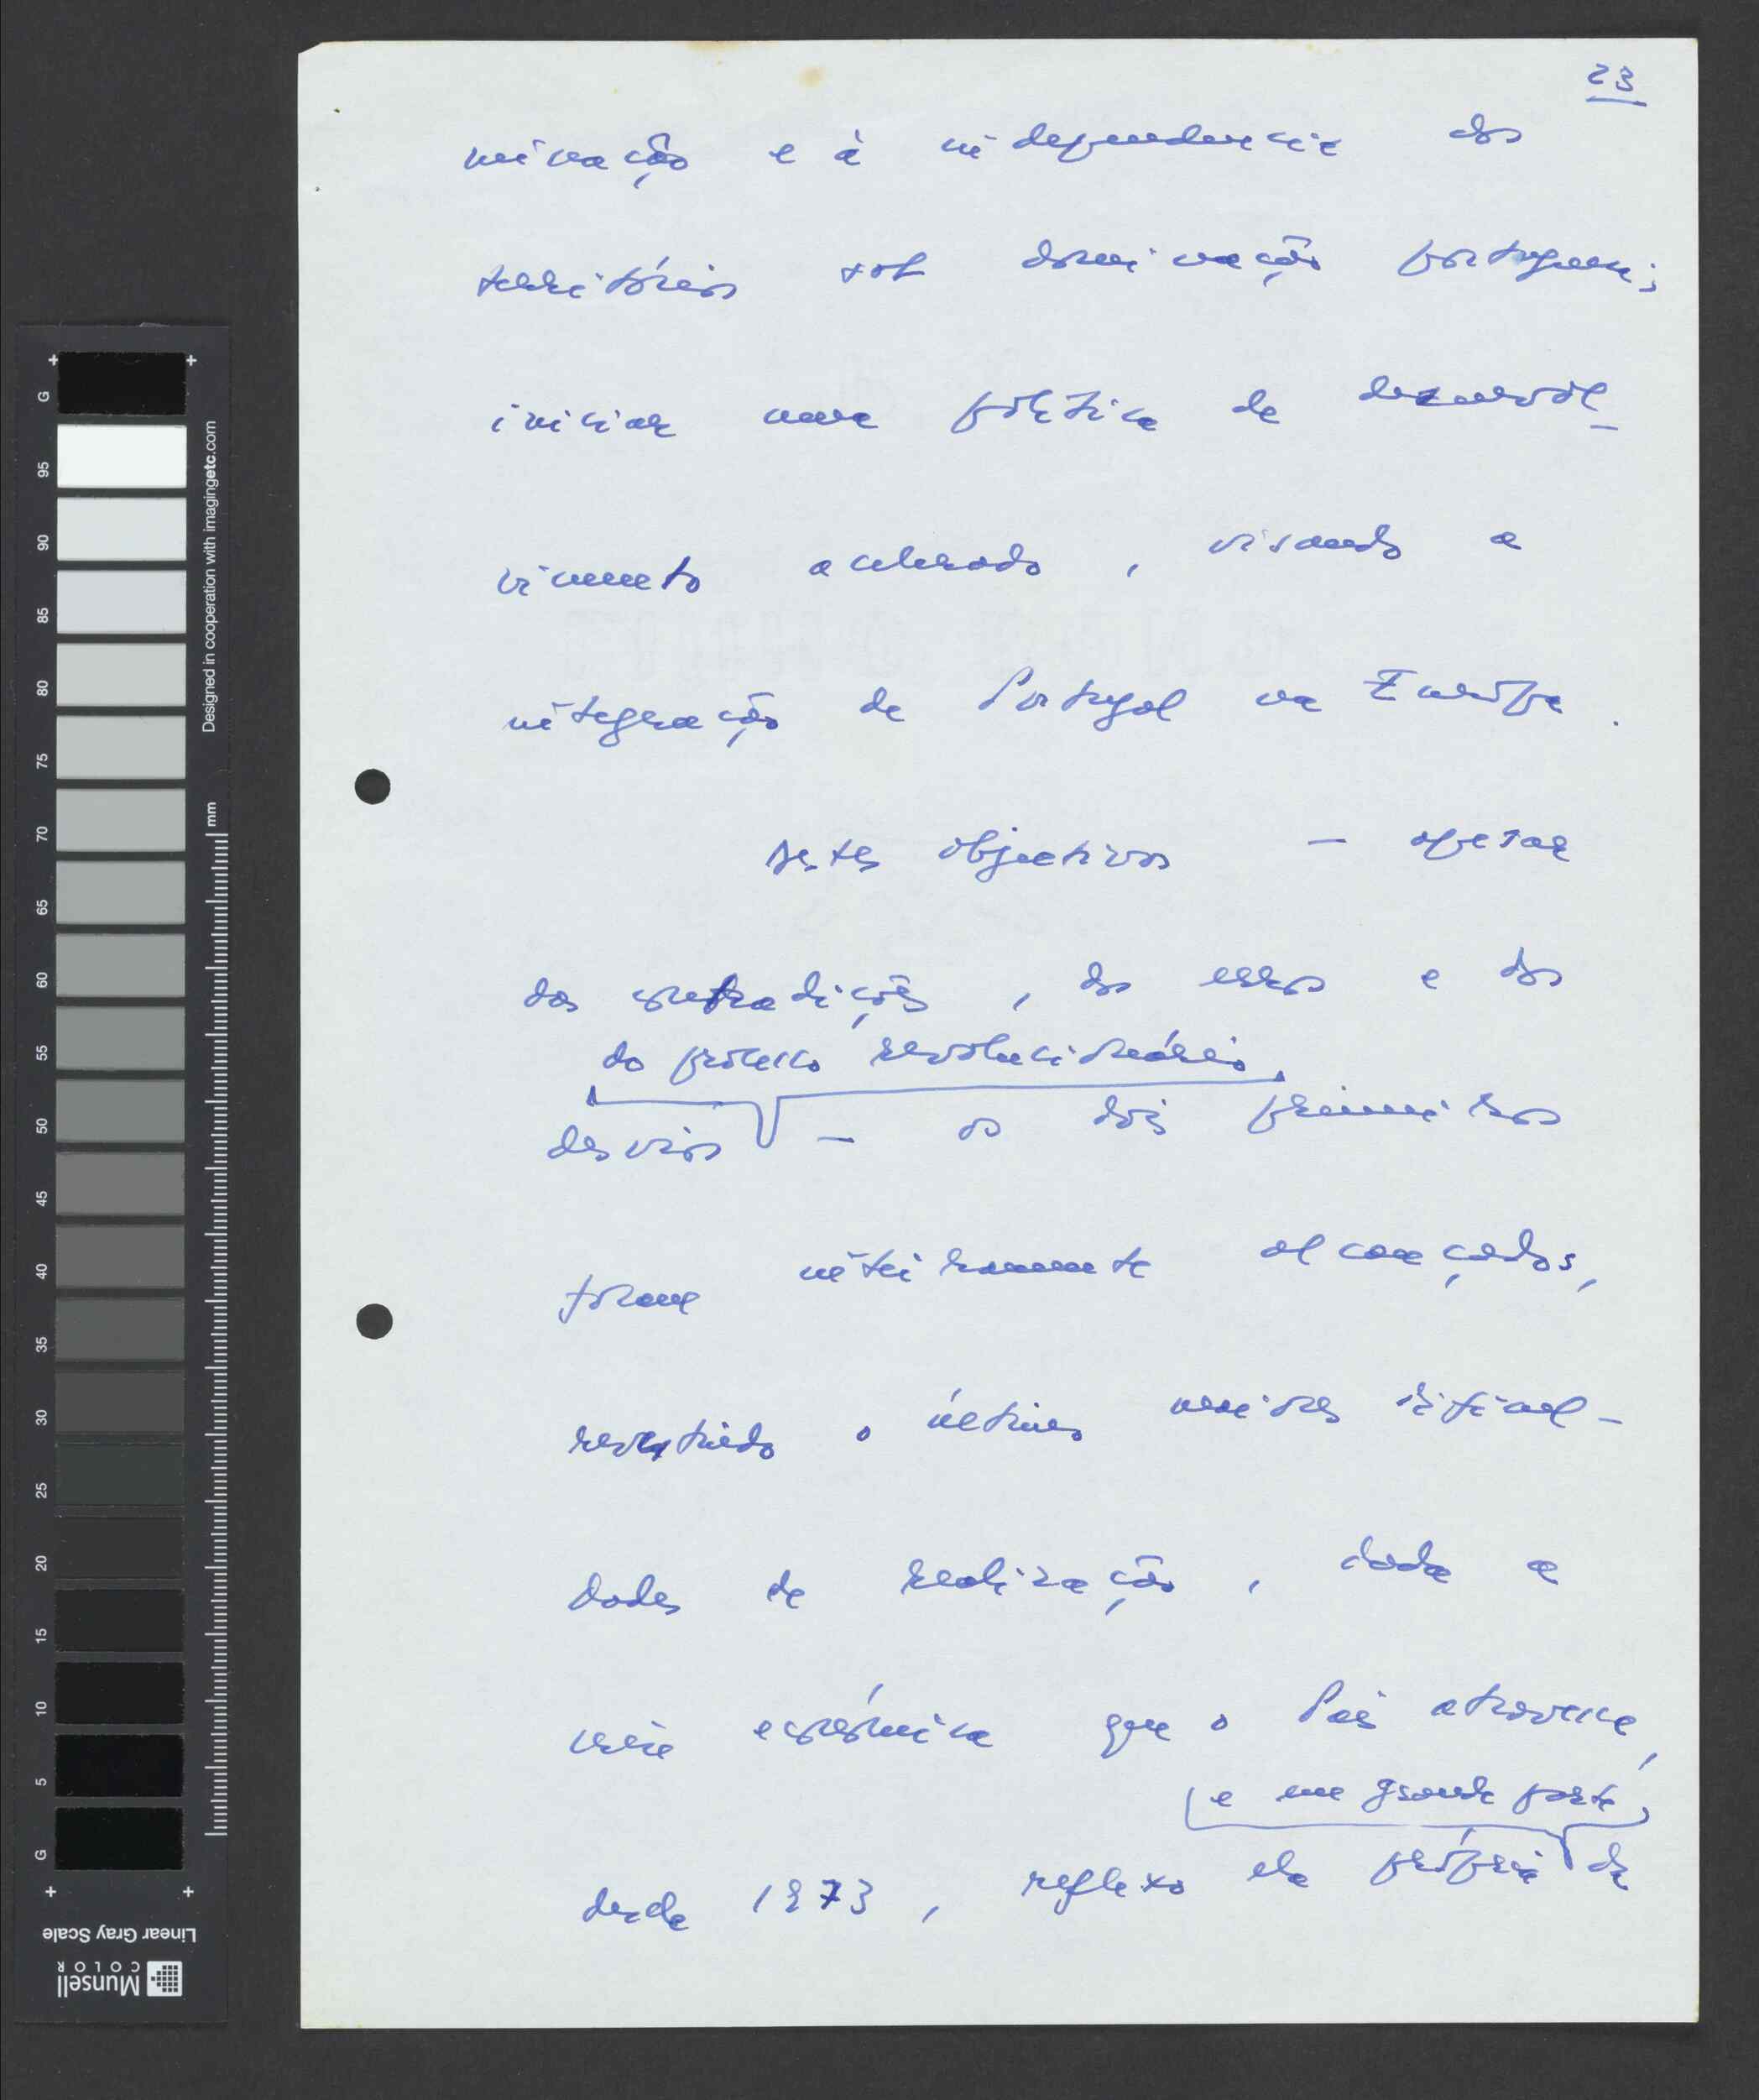 23
minação e à independência dos
territórios sob dominação portuguesa;
iniciar uma política de desenvol-
vimento acelerado, visando a
integração de Portugal na Europa.
Destes objectivos — apesar
das contradições, dos erros e dos
do processo revolucionário,
desvios — os dois primeiros
foram inteiramente alcançados,
revestindo o último maiores dificul-
dades de realização, dada a
crise económica que o País atravessa,
e em grande parte,
desde 1973, reflexo ela própria de
G
95
90
85
80
75
70
65
60
55
50
45
40
35
30
25
20
15
10
5
G
Designed in cooperation with imagingetc.com
mm
Linear Gray Scale
Munsell
COLOR